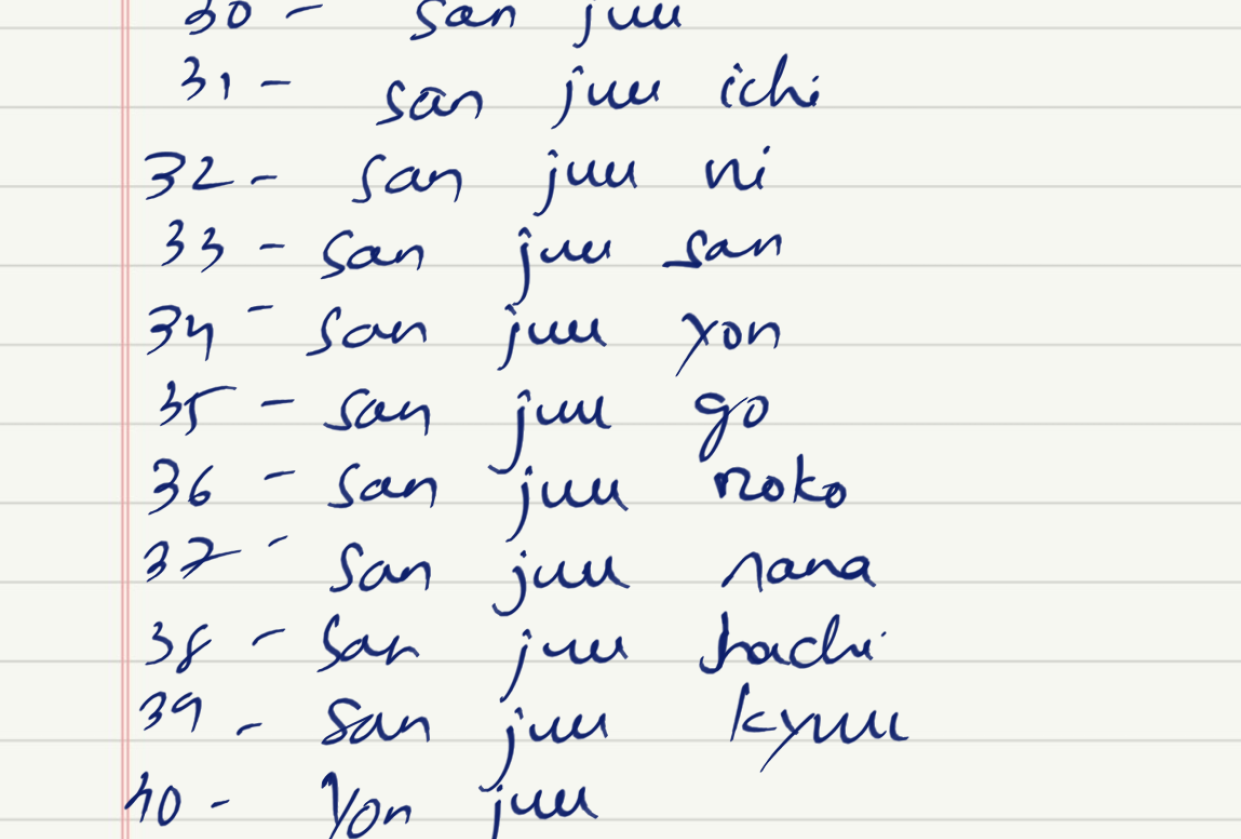 30 - san juu
31 - san juu ichi
32 - san juu ni
33 - san juu san
34 - san juu yon
35 - san juu go
36 - san juu roko
37 - san juu nana
38 - san juu hachi
39 - san juu kyuu
40 - Yon juu